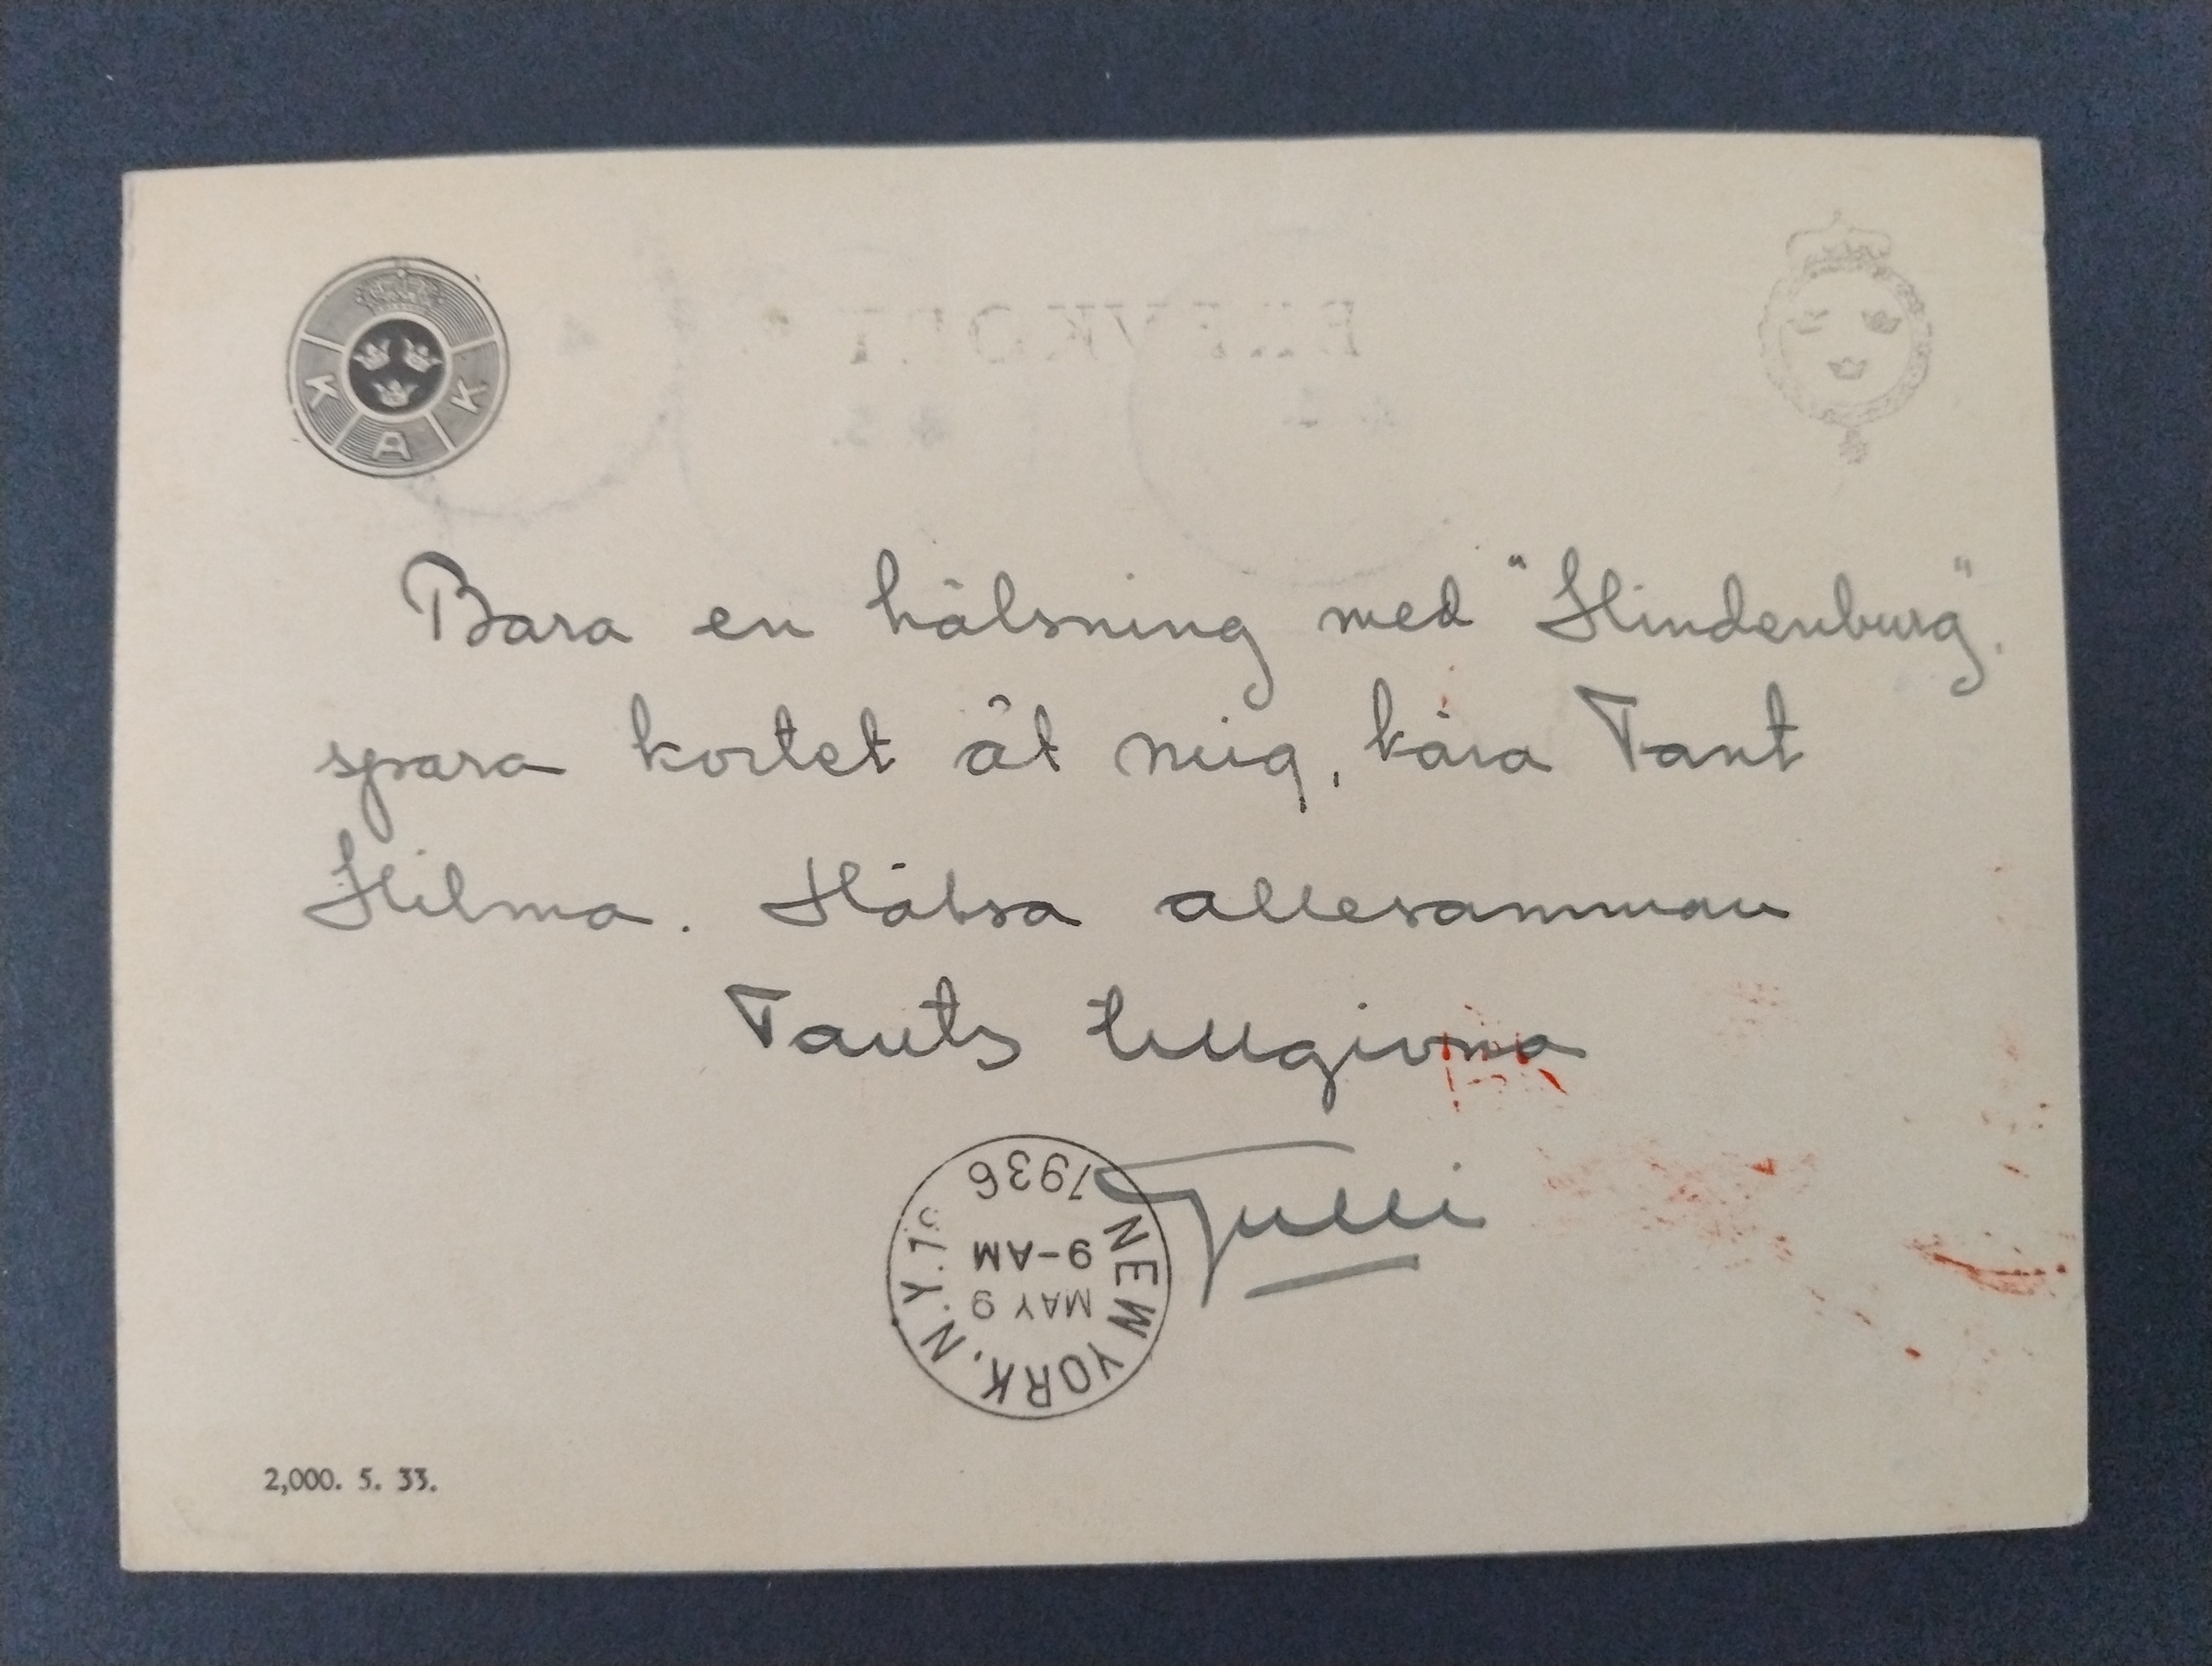 K A K
BREVKORT
Bara en hälsning med "Hindenburg".
spara kortet åt mig, kära Tant
Hilma. Hälsa allesamman
Tants tillgivna
Tulli
NEW YORK, N.Y.
MAY 9
9-AM
1936
2,000. 5. 33.